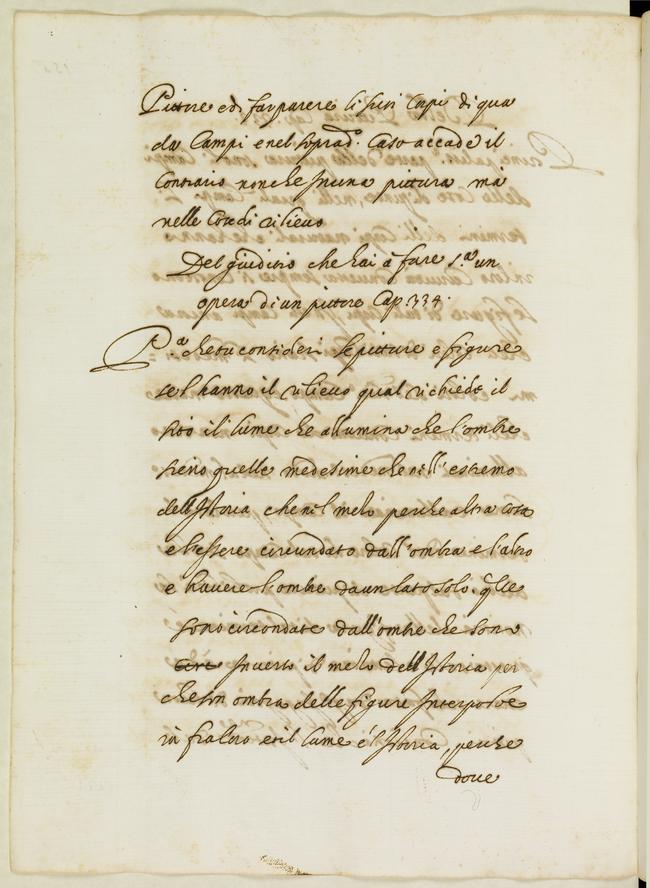 Pittore e di far parere li suoi Corpi di qua
da Campi e nel soprad.º Caso accade il
Contrario non che in una pittura ma
nelle Cose di rilievo
Del giuditio che hai à fare s.ª un
opera di un pittore Cap. 334.
P.ª che tu consideri se le pitture e figure
se l'hanno il rilievo qual richiede il
sito il lume che allumina che l'ombre
sieno quelle medesime che nell'estremo
dell'Istoria che nel mezo perche altra cosa
e l'essere circundato dall'ombra e l'altro
e havere l'ombre da un lato solo. q̃lle
sono circondate dall'ombre che sono
inverso il mezo dell'Istoria per
che son ombra delle figure Interposte
in fra loro et il lume e l'Istoria, perche
dove